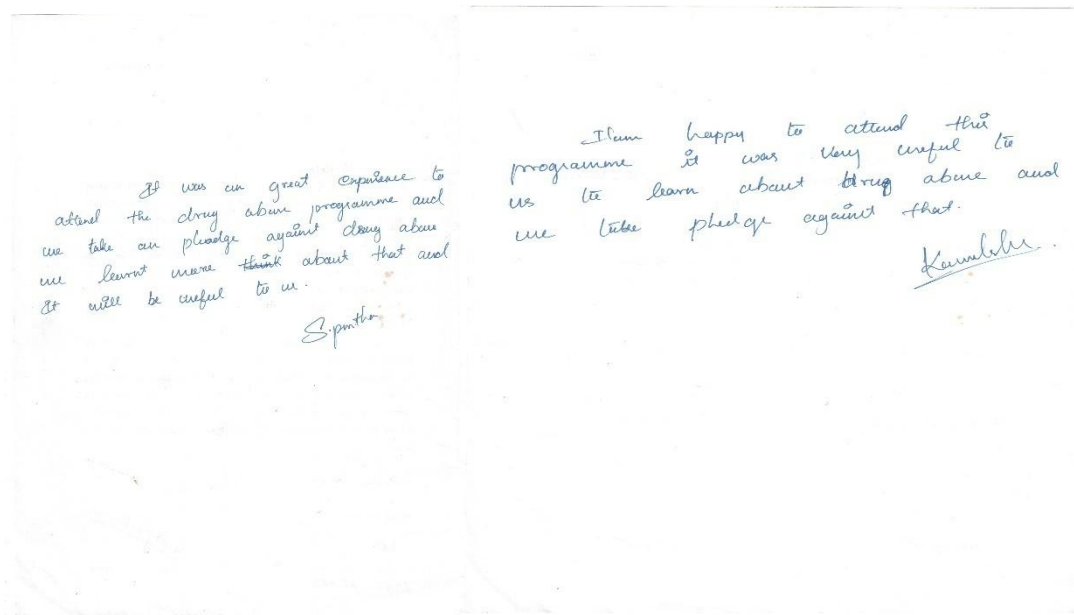 It was an great experience to
attend the drug abuse programme and
we take an pleadge against drug abuse
we learnt more think about that and
It will be useful to us.
I am happy to attend this
programme it was very useful to
us to learn about drug abuse and
we take pledge against that.